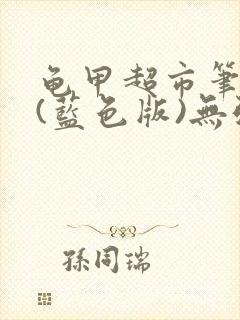 龟甲超市筆
(藍色版)無
孫同瑞